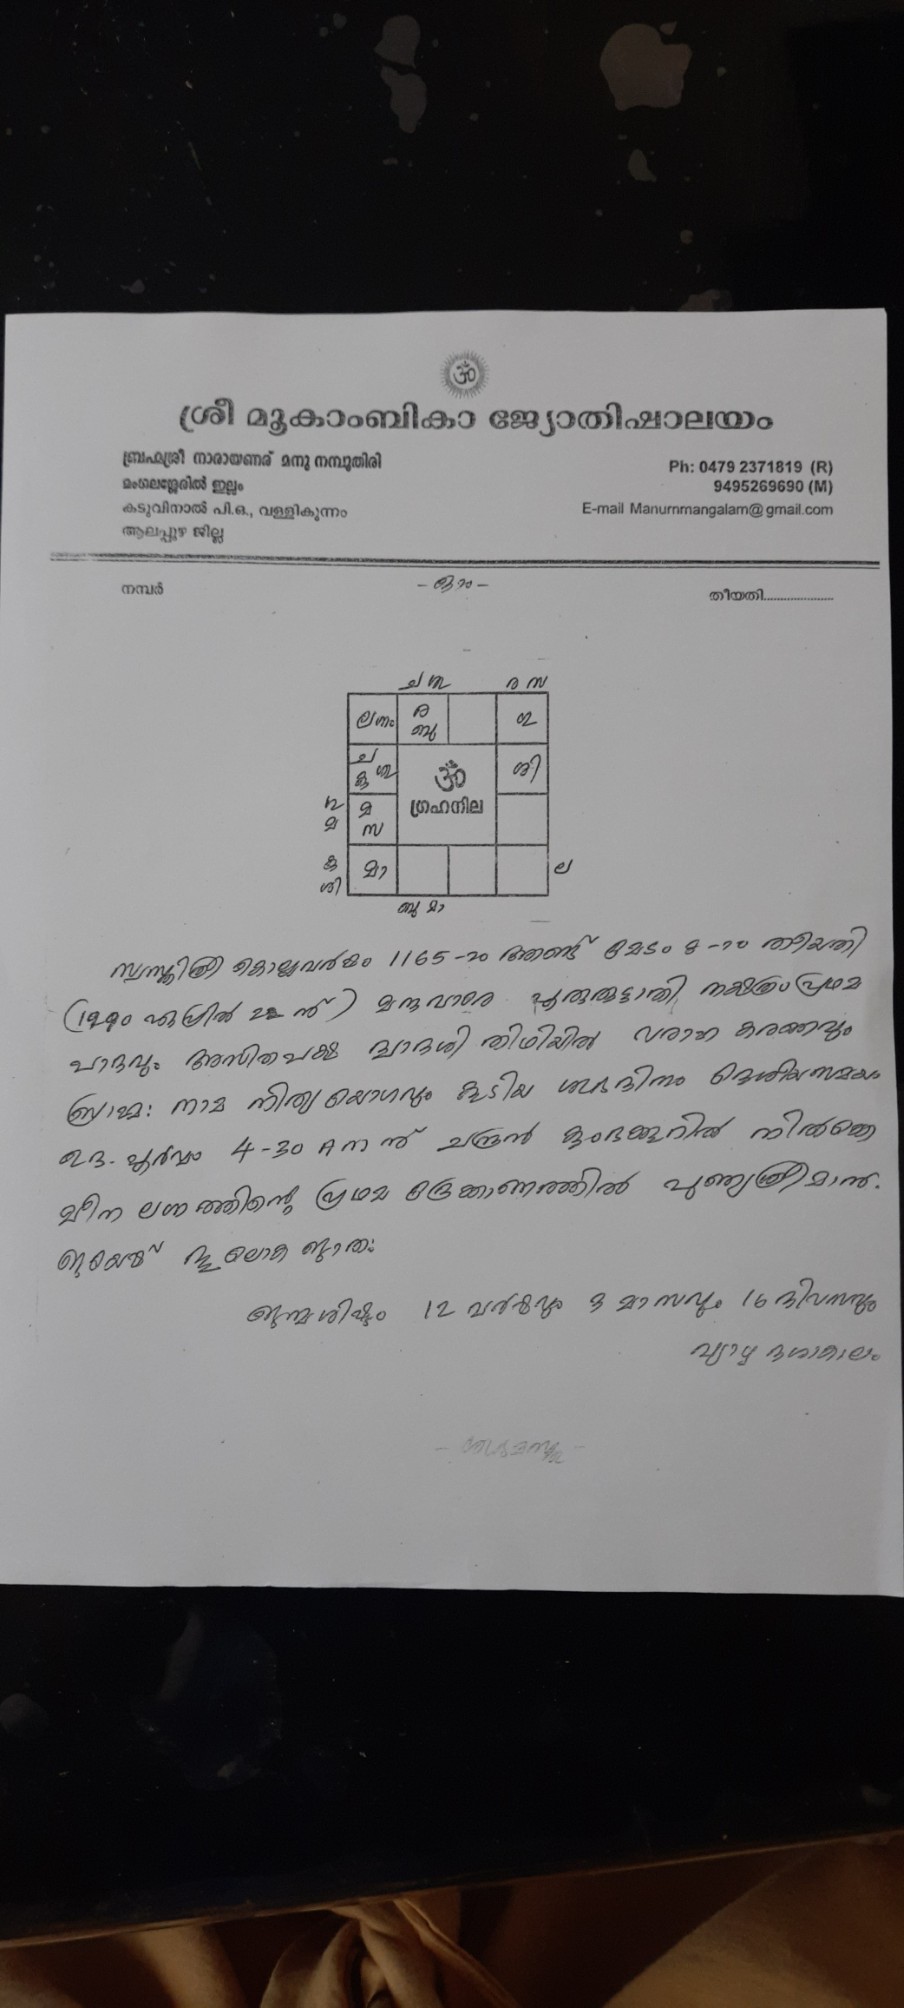 ॐ
ശ്രീ മൂകാംബികാ ജ്യോതിഷാലയം
ബ്രഹ്മശ്രീ നാരായണര് മനു നമ്പൂതിരി
മംഗലശ്ശേരിൽ ഇല്ലം
കടുവിനാൽ പി.ഒ., വള്ളികുന്നം
ആലപ്പുഴ ജില്ല
Ph: 0479 2371819 (R)
9495269690 (M)
E-mail Manurnmangalam@gmail.com
നമ്പർ
തീയതി....................
ര സ
ലഗ്നം ര
ബു
ച
ശി
ॐ
ഗ്രഹനില
മ
സ
മാ
ല
ബു മാ
കൊല്ലവർഷം 1165-ാം ആണ്ട് മേടം 8-ാം തീയതി
(1990 ഏപ്രിൽ 22 ന്) മന്ദവാരെ പൂരുരുട്ടാതി നക്ഷത്രം പ്രഥമ
പാദവും അസിതപക്ഷ ദ്വാദശി തിഥിയിൽ വരാഹ കരണവും
ബ്രാഹ്മ: നാമ നിത്യ യോഗവും കൂടിയ ശുഭദിനം
4-30 AM ന് ചന്ദ്രൻ കുംഭക്കൂറിൽ നിൽക്കെ
മീന ലഗ്നത്തിന്റെ പ്രഥമ ദ്രേക്കാണത്തിൽ
ജാത:
ജന്മശിഷ്ടം 12 വർഷവും 3 മാസവും 16 ദിവസവും
വ്യാഴ ദശാകാലം